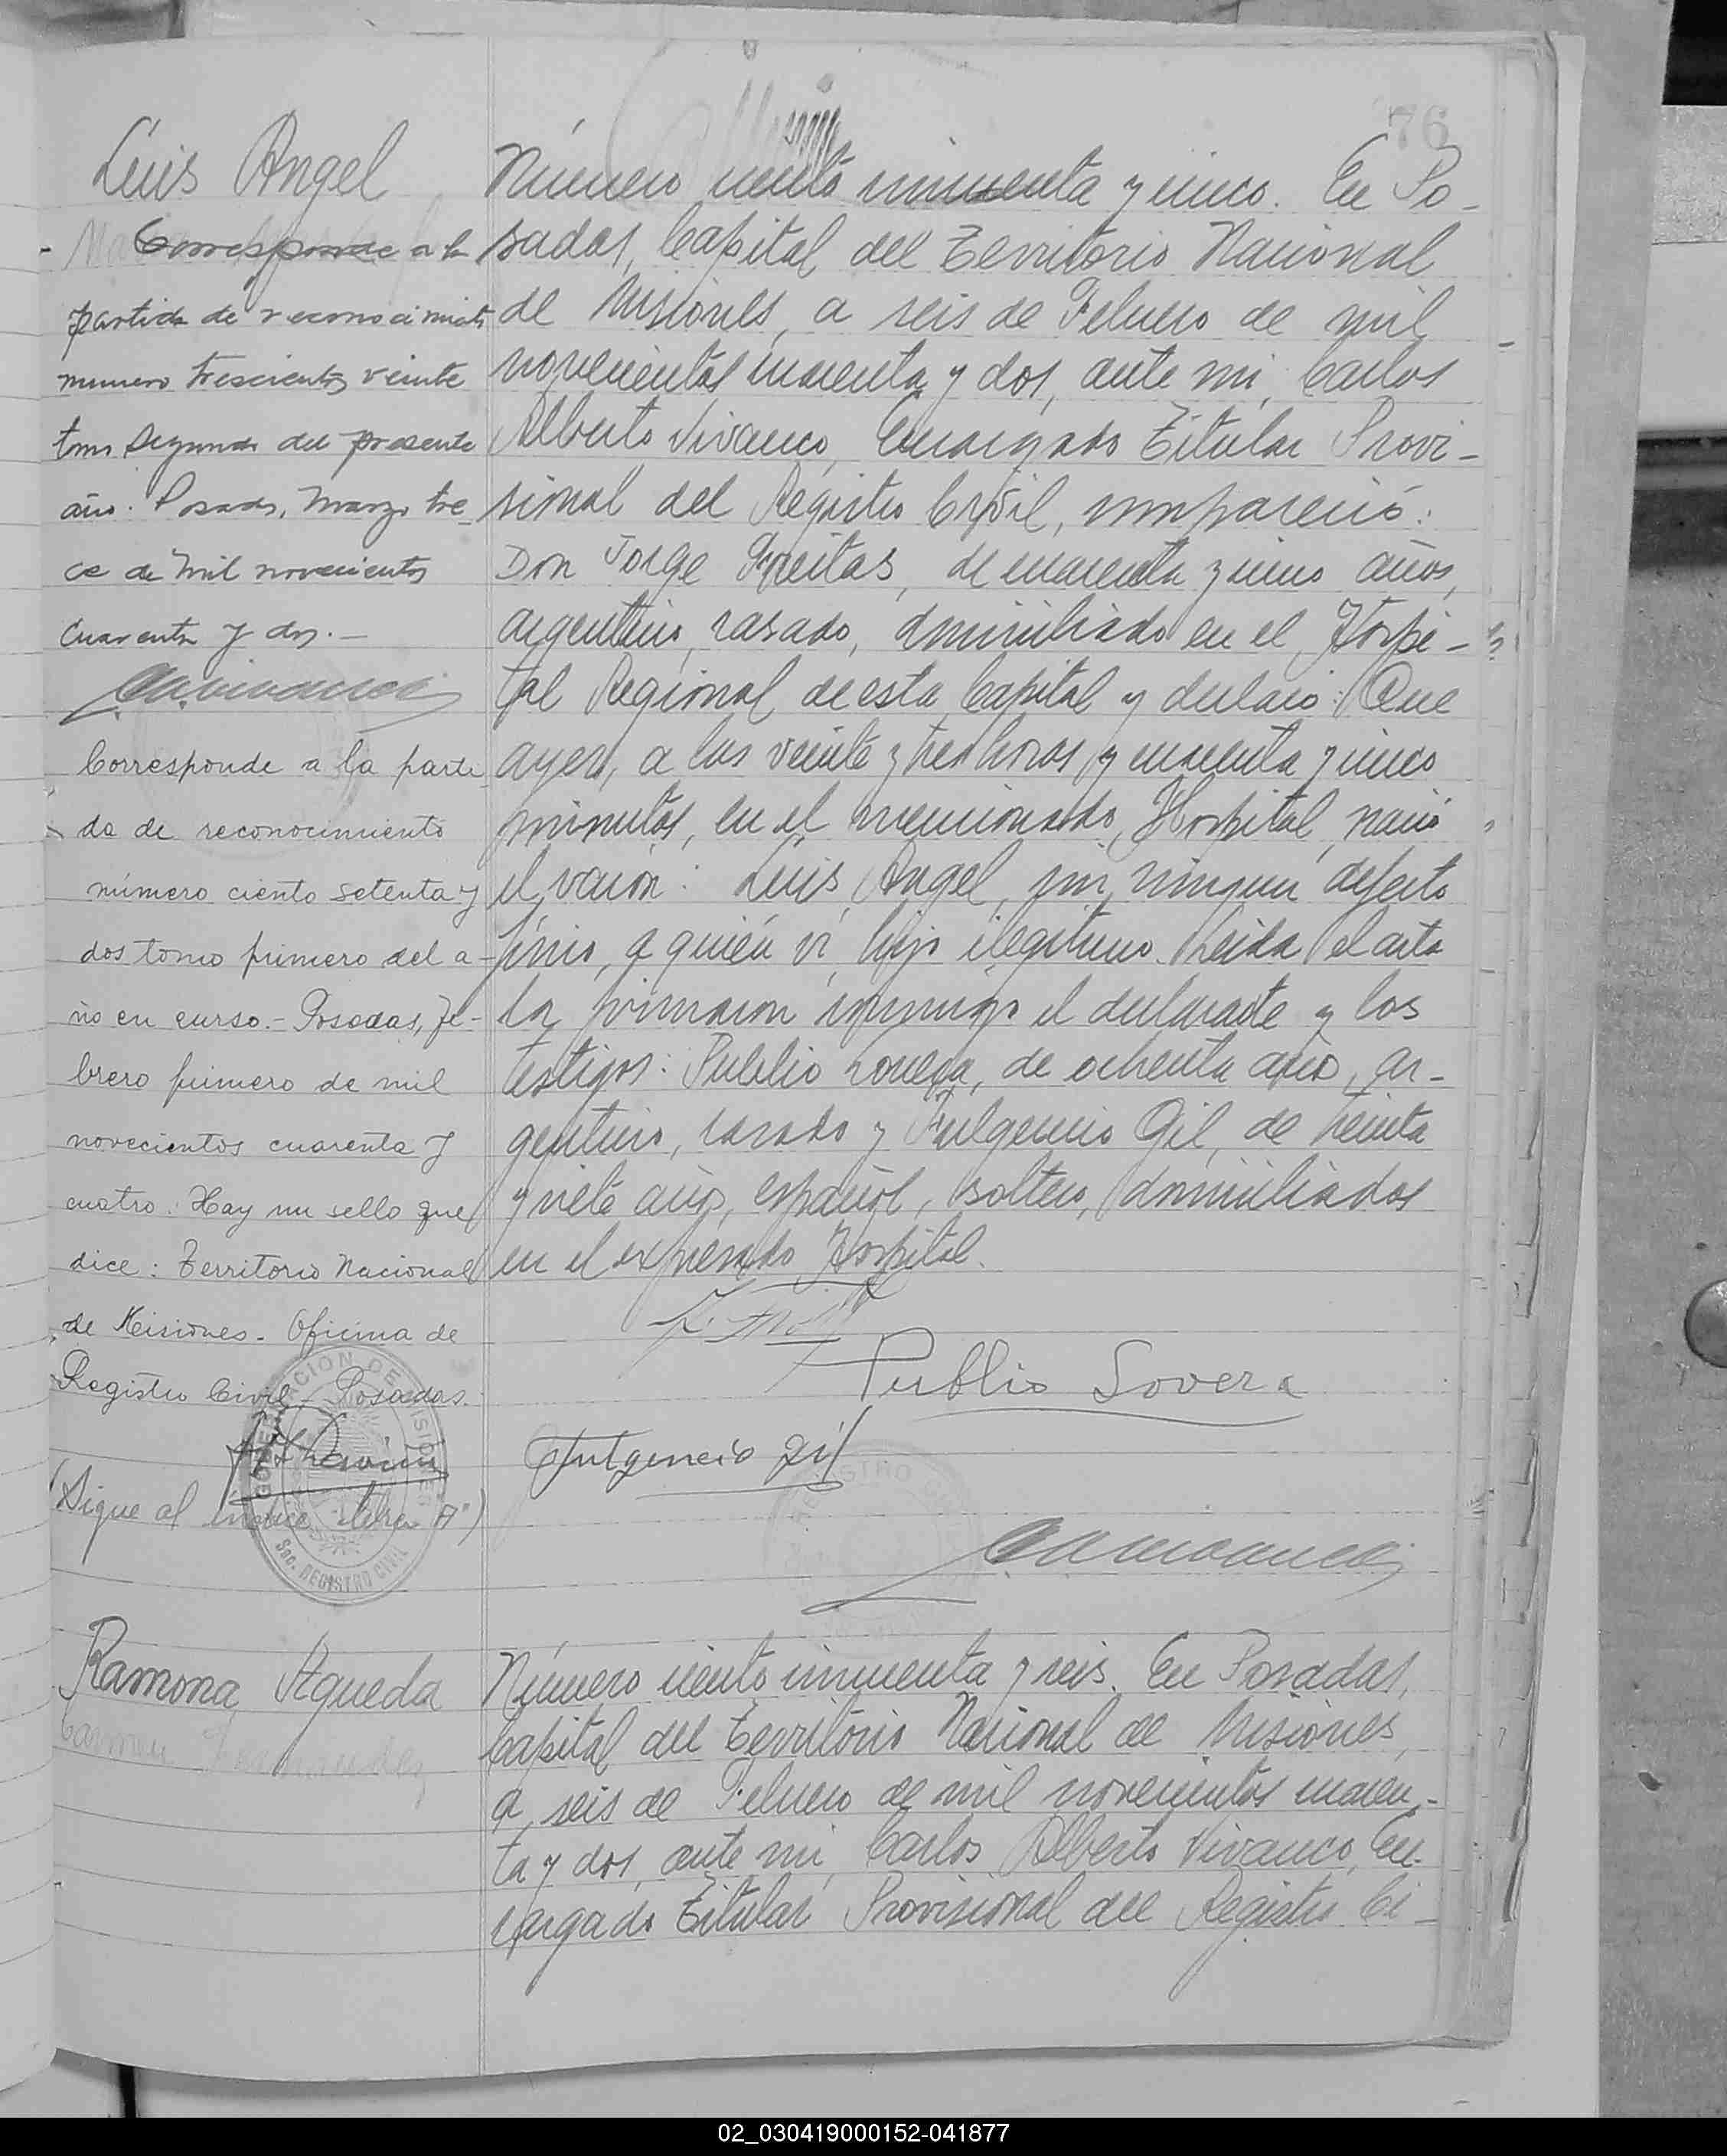 76
Luis Angel
Corresponde a la
partida de reconocimiento
numero trescientos veinte
tomo segundo del presente
año. Posadas, Marzo tre-
ce de mil novecientos
cuarenta y dos.-
Corresponde a la parti-
da de reconocimiento
número ciento setenta y
dos tomo primero del a-
ño en curso.- Posadas, Fe-
brero primero de mil
novecientos cuarenta y
cuatro. Hay un sello que
dice: Territorio Nacional
de Misiones - Oficina de
Registro Civil, Posadas.
GOBERNACION DE MISIONES
Sec. REGISTRO CIVIL
(Sigue al índice letra "A")
Número ciento cincuenta y cinco. En Po-
sadas, Capital del Territorio Nacional
de Misiones, a seis de Febrero de mil
novecientos cuarenta y dos, ante mi, Carlos
Alberto Vivanco, Encargado Titular Provi-
sional del Registro Civil, compareció:
Don Jorge Freitas, de cuarenta y cinco años,
argentino, casado, domiciliado en el Hospi-
tal Regional de esta Capital y declaró: Que
ayer, a las veinte y tres horas y cuarenta y cinco
minutos, en el mencionado Hospital, nació
el varón: Luis Angel, sin ningun defecto
físico, a quién ví, hijo ilegitimo. Leida el acta
la firmaron conmigo el declarante y los
testigos: Publio Lovera, de ochenta años, ar-
gentino, casado y Fulgencio Gil, de treinta
y siete años, español, soltero, domiciliados
en el expresado Hospital.
Publio Lovera
Fulgencio Gil
Ramona Agueda
Carmen Fernandez
Número ciento cincuenta y seis. En Posadas,
Capital del Territorio Nacional de Misiones,
a seis de Febrero de mil novecientos cuaren-
ta y dos, ante mi, Carlos Alberto Vivanco, En-
cargado Titular Provisional del Registro Ci-
02_030419000152-041877